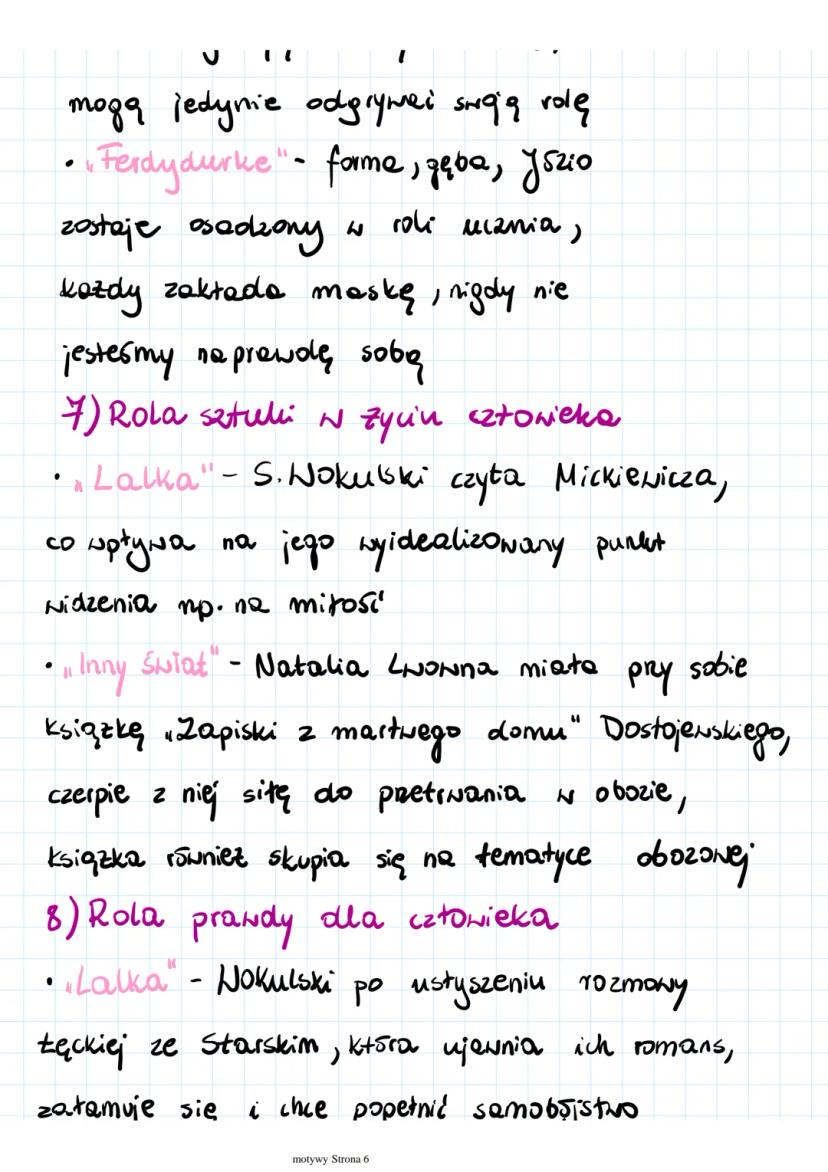 mogą jedynie odgrywać swoją rolę
• „Ferdydurke" - forma, gęba, Józio
zostaje osadzony w roli ucznia,
każdy zakłada maskę, nigdy nie
jesteśmy naprawdę sobą
7) Rola sztuki w życiu człowieka
• „Lalka" - S. Wokulski czyta Mickiewicza,
co wpływa na jego wyidealizowany punkt
widzenia np. na miłość
• „Inny świat" - Natalia Lwowna miała przy sobie
książkę „Zapiski z martwego domu" Dostojewskiego,
czerpie z niej siłę do przetrwania w obozie,
książka również skupia się na tematyce obozowej
8) Rola prawdy dla człowieka
• „Lalka" - Wokulski po usłyszeniu rozmowy
Łęckiej ze Starskim, która ujawnia ich romans,
załamuje się i chce popełnić samobójstwo
motywy Strona 6